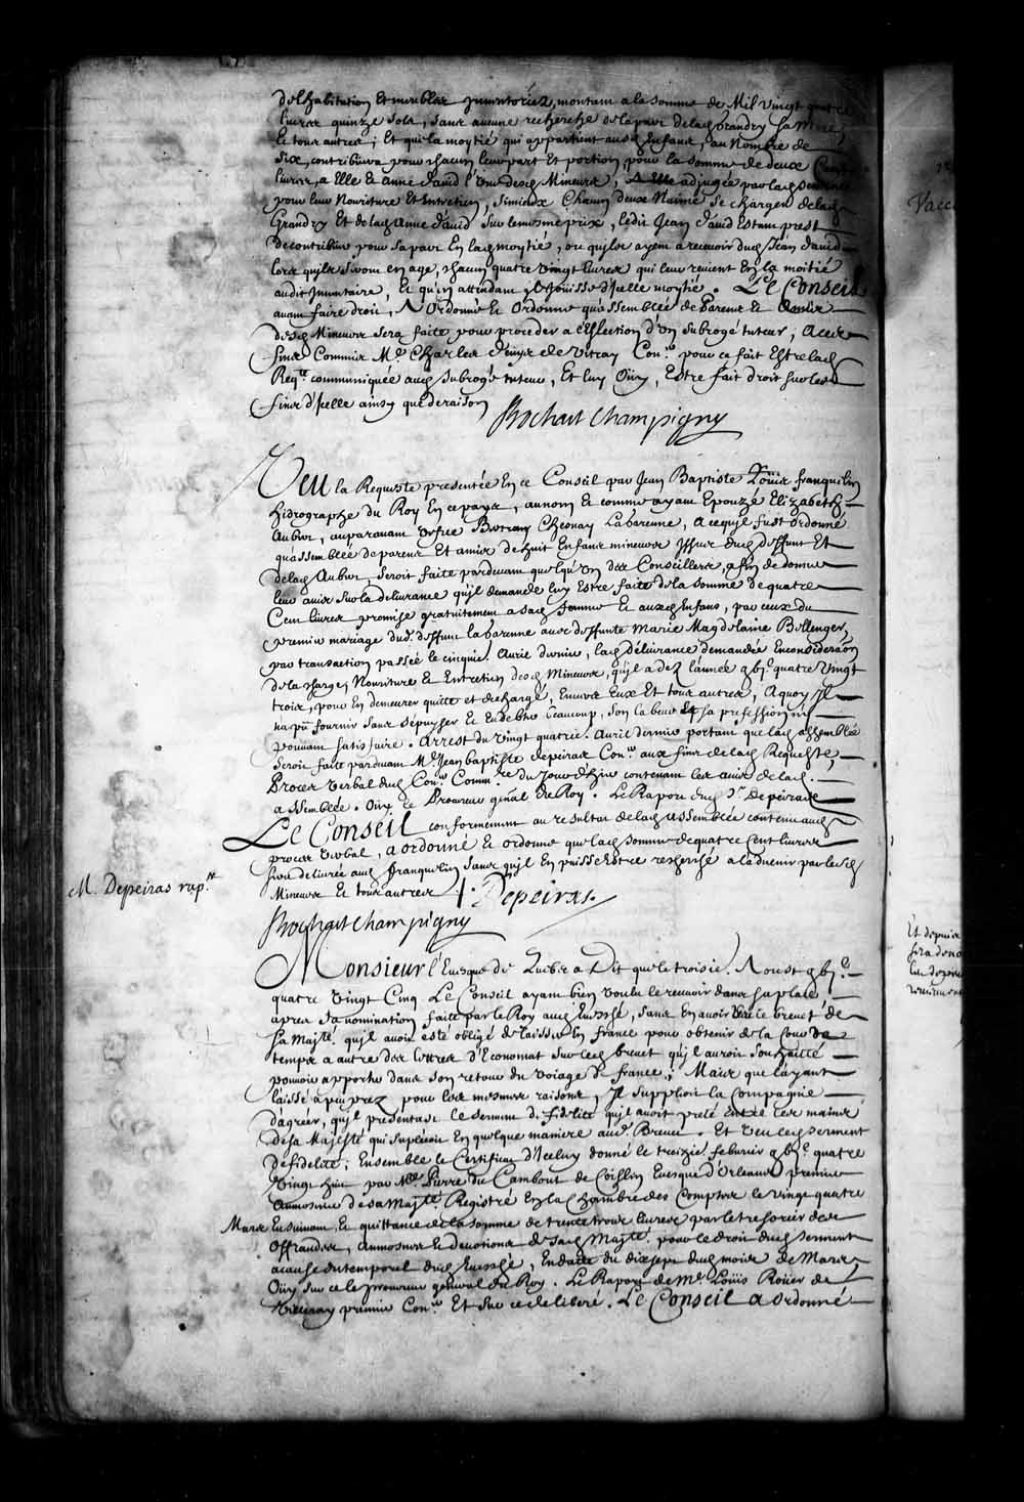 d'Habitation Et meubles Inventoriez, montant a la somme de Mil vingt quatre
livres quinze sols, sans aucune recherche de la part de lad. Grandry sa Mere,
Et tous autres; Et que la moytié qui appartient ausd. Enfans, au Nombre de
Six, contribuera pour chacun leur part Et portion, pour la somme de deux Cens
livres, a Elle Et Anne David l'une desd. Mineurs, adjugée par lad. sentence
pour leur Nouriture Et Entretien, Si mieux chacun deux N'aime Se charger de lad.
Grandry Et de lad. Anne David sur le mesme prix, led. Jean David Estant prest
De contribuer pour sa part En lad. moytié, ou qu'ils ayent a recevoir dud. Jean David
lors qu'ils seront en age, chacun quatre vingt livres qui leur revient En la moitié
audit Inventaire, Et qu'en attendant il Jouisse d'Icelle moytié. Le Conseil
avant faire droit, A Ordonné Et Ordonne qu'assemblée de Parens Et Amis
desd. Mineurs Sera faite pour proceder a l'Eslection d'un Subrogé tuteur, A ces
fins Commis Me. Charles Denys de Vitray Coner. pour ce fait Estre lad.
Reqte. communiquée aud. subrogé tuteur, Et luy Ouy, Estre fait droit sur les
fins d'Icelle ainsy que de raison
Bochart Champigny
Veu la Requeste presentée En ce Conseil par Jean Baptiste Loüis franquelin
hidrographe du Roy En ce pays, au nom Et comme ayant Epouzé Elizabeth
Aubert, auparavant vefve Bertrand Chesnay Lagarenne, A ce qu'il fust ordonné
qu'assemblée de parens Et amis de huit Enfans mineurs Issus dud. deffunt Et
de lad. Aubert, Seroit faite pardevant quelqu'un des Conseillers, afin de donner
leur avis Sur la delivrance qu'il demande luy Estre faite de la somme de quatre
Cens livres promise gratuitement a sad. femme Et ausd. Enfans, par ceux du
premier mariage dud. deffunt lagarenne avec deffunte Marie Magdelaine Bellenger,
par transaction passée le cinquie. Avril dernier, lad. délivrance demandée En consideraon
de la charge, Nouriture Et Entretien desd. Mineurs, qu'il a dez l'année gbj.c quatre Vingt
trois, pour En demeurer quitte et dechargé, Envers Eux Et tous autres, A quoy Il
n'a pû fournir sans depuyser Et Endebter beaucoup, Son labeur Et sa profession n'y
pouvant satisfaire. Arrest du vingt quatrie. Avril dernier portant que lad. assemblée
Seroit faite pardevant Me. Jean baptiste depeiras Coner. aux fins de lad. Requeste,
Procez Verbal dud. Coner. Commre. du Jour d'hier contenant les avis de lad.
assemblée. Ouy Le Procureur gñal du Roy. Le Raport dud. Sr. Depeiras
Le Conseil conformement au resultat de lad. assemblée contenu aud.
procez Verbal, a ordonné Et ordonne que lad. somme de quatre Cent livres
Sera delivrée aud. franquelin Sans qu'il En puisse Estre recherché a l'advenir par lesd.
M. Depeiras rapr.
Mineurs Et tous autres Depeiras
Bochart Champigny
Monsieur l'Evesque de Quebec a Dit que le troisie. Aoust gbj.c
quatre Vingt Cinq Le Conseil ayant bien voulu le recevoir dans sa place,
apres Sa nomination faite par le Roy aud. Evesché, sans En avoir le brevet de
Sa Majté. qu'il avoit esté obligé de laisser En france pour obtenir de la Cour de
temps a autre des lettres d'Economat sur led. brevet qu'il auroit souhaitté
pouvoir apporter dans son retour du voiage de france; Mais que l'ayant
laissé a peu prez pour les mesmes raisons, Il supplioit la Compagnie
d'agréer, qu'il presentast le serment de fidelité qu'il avoit presté entre les mains
de sa Majesté qui supléeroit En quelque maniere aud. Brevet. Et veu led. serment
de fidelité; Ensemble le Certificat d'Iceluy donné le treizie. febvrier gbj.c quatre
Vingt huit par Mre. Pierre du Cambout de Coislin Evesque d'Orleans premier
Aumosnier de sa Majté. Registré En la Chambre des Comptes le vingt quatre
Mars Ensuivant, Et quittance de la somme de trente trois livres par le tresorier des
Offrandes, Aumosnes Et Devotions de sad. Majté. pour le droit dud. serment
a cause du temporel dud. Evesché, En datte du dix sept dud. mois de Mars,
Ouy sur ce le procureur general du Roy. Le Raport de Me. Loüis Roüer de
Villeray premier Coner. Et sur ce deliberé. Le Conseil a Ordonné
Et depuis